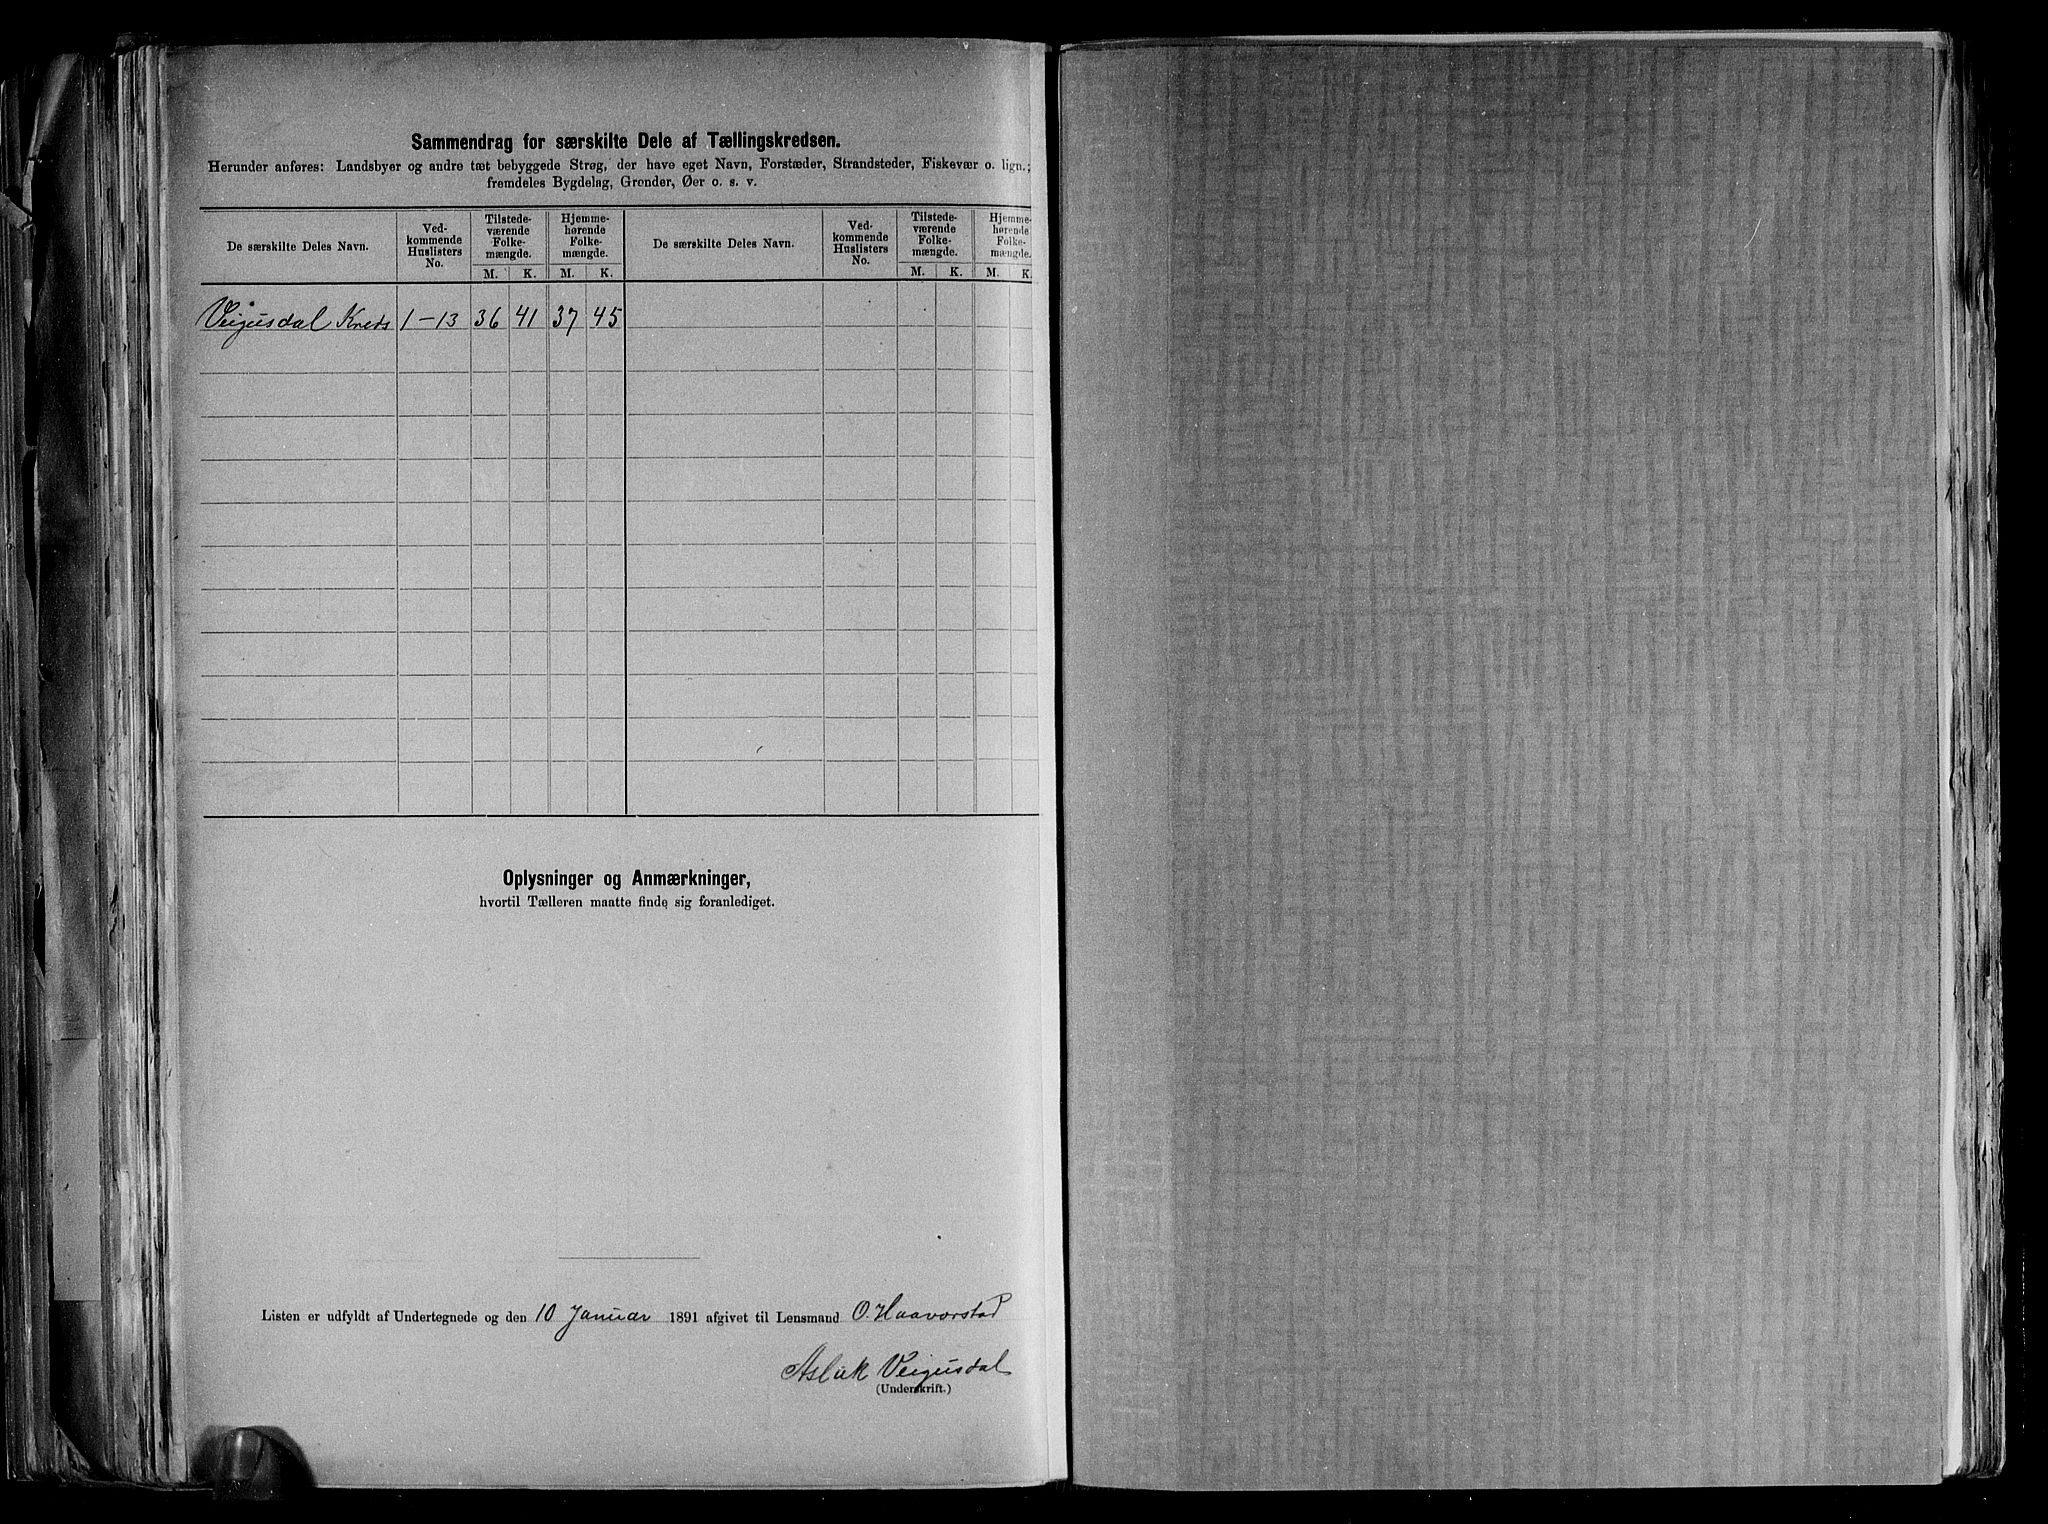 Sammendrag for særskilte Dele af Tællingskredsen.
Herunder anføres: Landsbyer og andre tæt bebyggede Strøg, der have eget Navn, Forstæder, Strandsteder, Fiskevær o. lign.;
fremdeles Bygdelag, Grender, Øer o. s. v.
De særskilte Deles Navn. Ved-kommende Huslisters No. Tilstede-værende Folke-mængde. Hjemme-hørende Folke-mængde. De særskilte Deles Navn. Ved-kommende Huslisters No. Tilstede-værende Folke-mængde. Hjemme-hørende Folke-mængde.
M. K. M. K. M. K. M. K.
Veigusdal Kreds 1-13 36 41 37 45
Oplysninger og Anmærkninger,
hvortil Tælleren maatte finde sig foranlediget.
Listen er udfyldt af Undertegnede og den 10 Januar 1891 afgivet til Lensmand O. Haavorstad
Aslak Veigusdal
(Underskrift.)